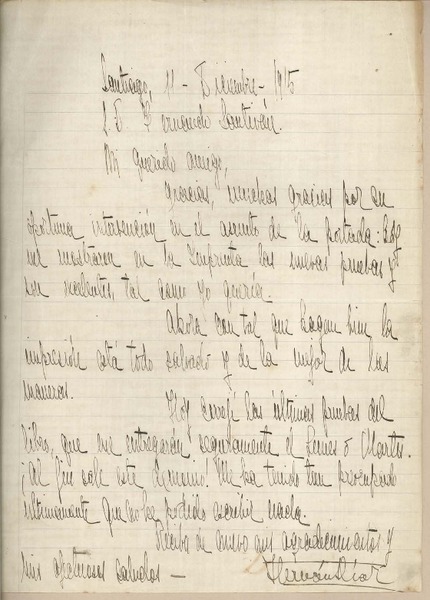 Santiago, 11 - Diciembre - 1915
S. D. Fernando Santiván.
Mi querido amigo,
Gracias, muchas gracias por su
oportuna intervención en el asunto de la portada: hoy
me mostraron en la Imprenta las nuevas pruebas y
son excelentes, tal como yo quería.
Ahora con tal que hagan bien la
impresión está todo salvado y de la mejor de las
maneras.
Hoy corregí las últimas pruebas del
libro, que me entregarán seguramente el Lunes o Martes.
¡Al fin sale este demonio! Me ha tenido tan preocupado
ultimamente que no he podido escribir nada.
Reciba de nuevo mis agradecimientos y
mis afectuosos saludos —
Hernán Díaz